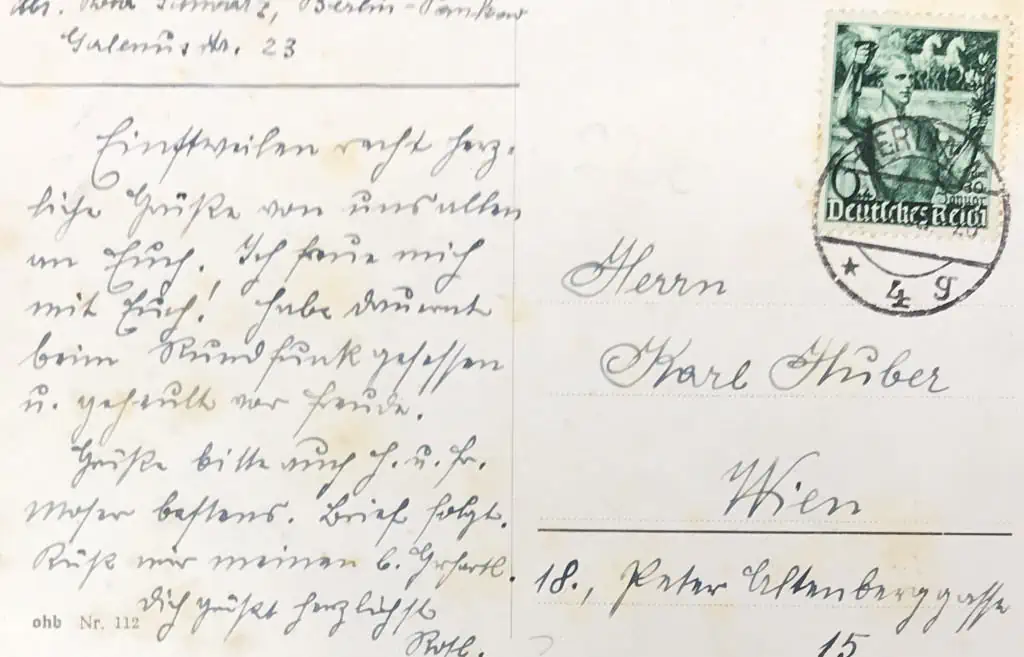 Abs. Rosa Schwarz, Berlin-Pankow
Galenusstr. 23
Einstweilen recht herz-
liche Grüße von uns allen
an Euch. Ich freue mich
mit Euch! Habe dauernd
beim Rundfunk gesessen
u. geheult vor Freude.
Grüße bitte auch H. u. Fr.
Moser bestens. Brief folgt.
Küß mir meinen
Dich grüßt herzlichst
ohb Nr. 112
30.
Januar
Deutsches Reich
4 g
Herrn
Karl Huber
Wien
18., Peter Altenberggasse
15